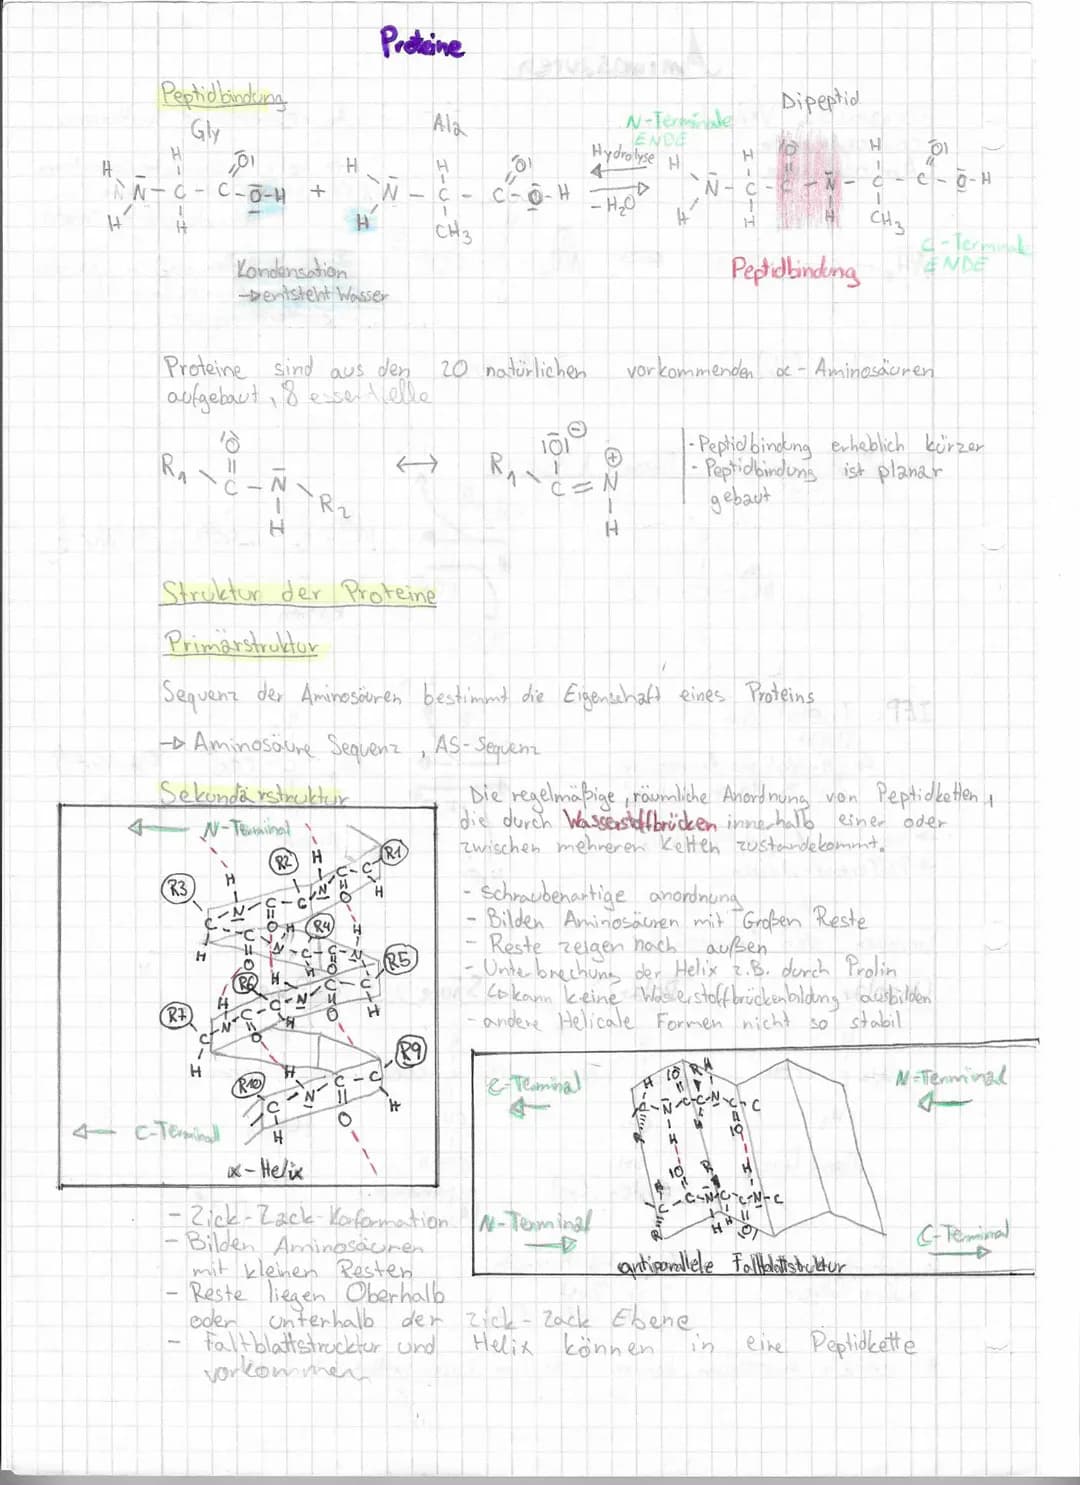 Proteine
Peptidbindung
Gly
Ala
Dipeptid
N-Terminale
ENDE
Hydrolyse
- H₂O
CH₃
CH₃
C-Terminale
ENDE
Peptidbindung
Kondensation
→ entsteht Wasser
Proteine sind aus den 20 natürlichen vorkommenden α-Aminosäuren
aufgebaut, 8 essentielle
R₁
R₂
R₁
- Peptidbindung erheblich kürzer
- Peptidbindung ist planar
gebaut
Struktur der Proteine
Primärstruktur
Sequenz der Aminosäuren bestimmt die Eigenschaft eines Proteins
→ Aminosäure Sequenz, AS-Sequenz
Sekundärstruktur
Die regelmäßige, räumliche Anordnung von Peptidketten,
die durch Wasserstoffbrücken innerhalb einer oder
zwischen mehreren Ketten zustandekommt.
N-Terminal
R1
R2
R3
R4
R5
R6
R7
R9
R10
C-Terminal
α-Helix
- Schraubenartige anordnung
- Bilden Aminosäuren mit Großen Reste
- Reste zeigen nach außen
- Unterbrechung der Helix z.B. durch Prolin
↳ kann keine Wasserstoffbrückenbildung ausbilden
- andere Helicale Formen nicht so stabil
C-Terminal
N-Terminal
N-Terminal
C-Terminal
antiparallele Faltblattstruktur
- Zick-Zack-Konformation
- Bilden Aminosäuren
mit kleinen Resten
- Reste liegen Oberhalb
oder unterhalb der Zick-Zack Ebene
- Faltblattstrucktur und Helix können in eine Peptidkette
vorkommen